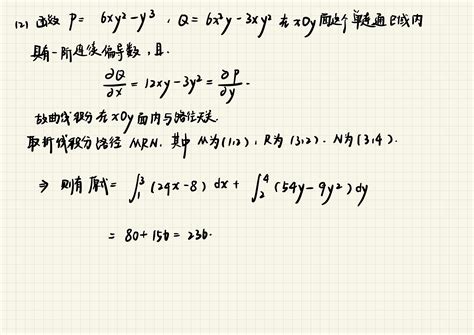 (2) 函数 P = 6xy²-y³ , Q = 6x²y-3xy² 在 xOy 面这个单连通区域内
具有一阶连续偏导数, 且.
∂Q/∂x = 12xy-3y² = ∂P/∂y .
故曲线积分在 xOy 面内与路径无关.
取折线积分路径 MRN. 其中 M为(1,2), R为(3,2). N为(3,4).
⇒ 则有 原式= ∫₁³ (24x-8) dx + ∫₂⁴ (54y-9y²) dy
= 80+156 = 236.